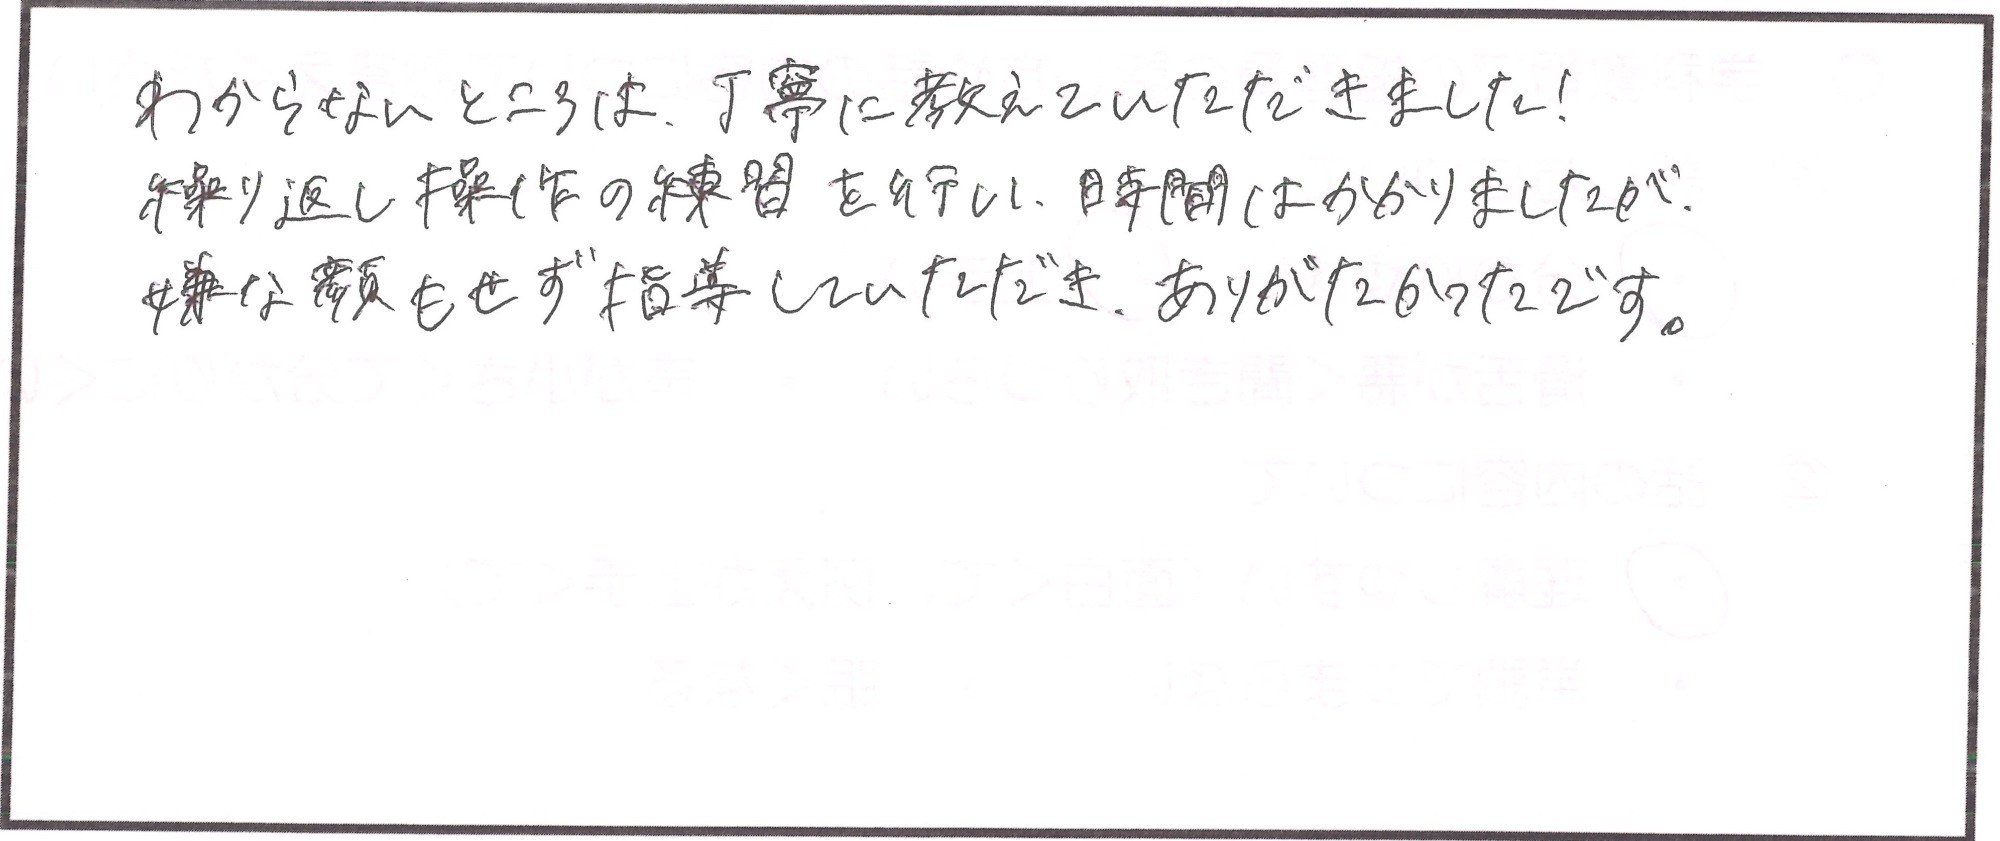 わからないところは、丁寧に教えていただきました!
繰り返し操作の練習を行い、時間はかかりましたが、
嫌な顔もせず指導していただき、ありがたかったです。